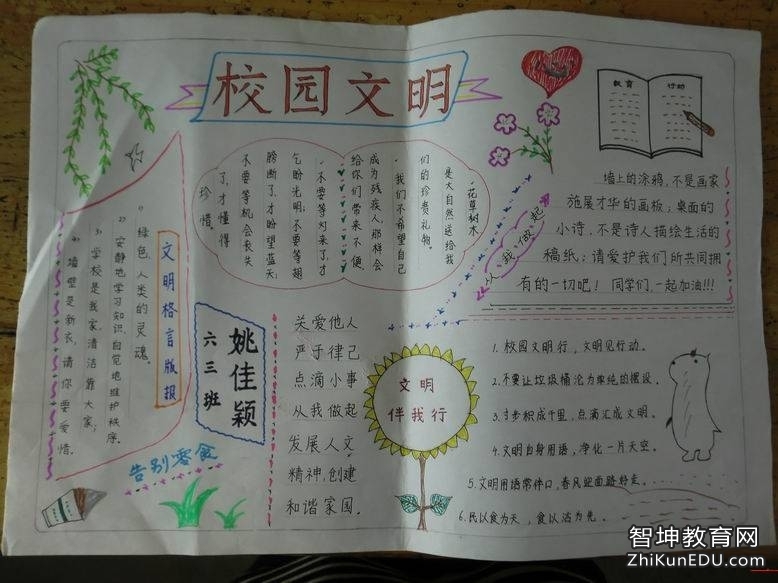 校园文明
教育
行动
墙上的涂鸦,不是画家
施展才华的画板;桌面的
小诗,不是诗人描绘生活的
稿纸;请爱护我们所共同拥
有的一切吧! 同学们,一起加油!!!
从,我,做,起
·花草树木
是大自然送给我
们的珍贵礼物。
·我们不希望自己
成为残疾人,那样会
给你们带来不便
·不要等灯来了,才
乞盼光明;不要等翅
膀断了,才盼望蓝天;
不要等机会丧失
了,才懂得
珍惜。
文明格言版报
1)绿色,人类的灵魂。
2)安静地学习知识,自觉地维护秩序。
3)学校是我家,清洁靠大家;
4)墙壁是新衣,请你要爱惜。
姚佳颖
六三班
告别零食
关爱他人
严于律己
点滴小事
从我做起
发展人文
精神,创建
和谐家园。
文明
伴我行
1.校园文明行,文明见行动。
2.不要让垃圾桶沦为单纯的摆设。
3.步积成千里,点滴汇成文明。
4.文明自身用语,净化一片天空。
5.文明用语常伴口,春风迎面路好走。
6.民以食为天,食以洁为先。
智坤教育网
ZhiKunEDU.com